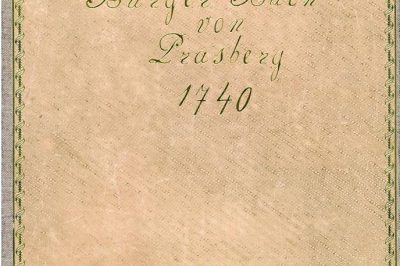 Burger Buch
von
Prasberg
1740